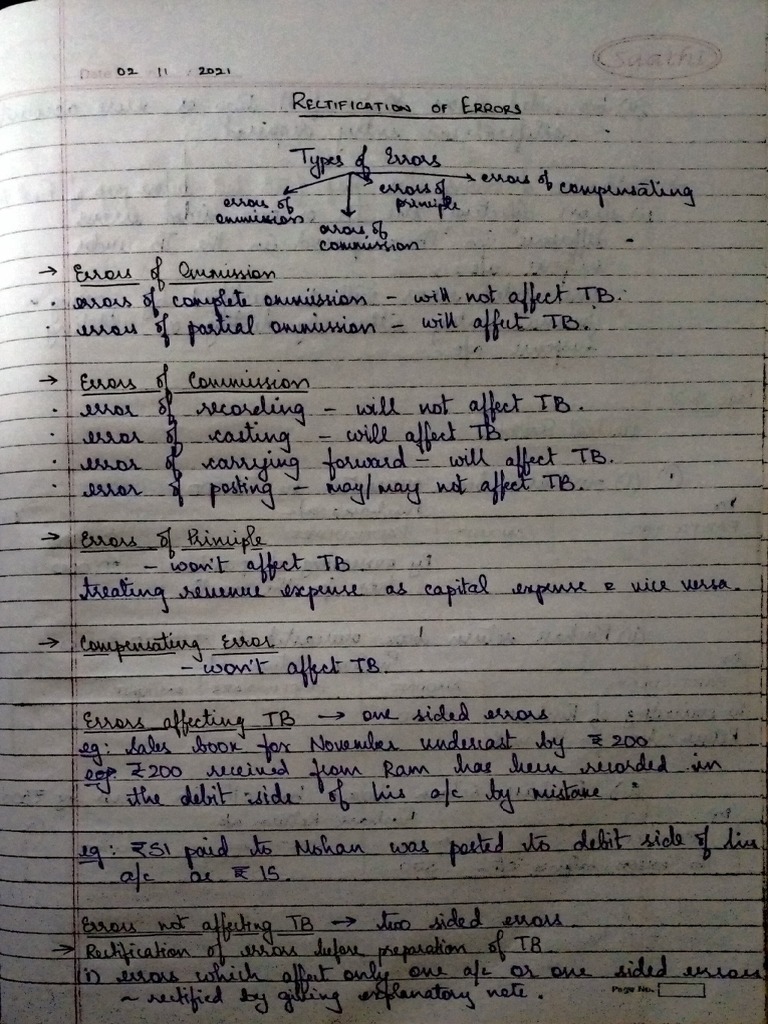 Date 02 11 2021
Saathi
RECTIFICATION OF ERRORS
Types of Errors
errors of ommission
errors of commission
errors of principle
errors of compensating
→ Errors of Ommission
· errors of complete ommission - will not affect TB.
· errors of partial ommission - will affect TB.
→ Errors of Commission
· error of recording - will not affect TB.
· error of casting - will affect TB.
· error of carrying forward - will affect TB.
· error of posting - may/may not affect TB.
→ Errors of Principle
- won't affect TB
treating revenue expense as capital expense & vice versa.
→ Compensating Error
- won't affect TB.
Errors affecting TB → one sided errors
eg: Sales book for November undercast by ₹200
eg: ₹200 received from Ram has been recorded in
the debit side of his a/c by mistake
eg: ₹51 paid to Mohan was posted to debit side of his
a/c as ₹15.
Errors not affecting TB → two sided errors
→ Rectification of errors before preparation of TB
(i) errors which affect only one a/c or one sided errors
~ rectified by giving explanatory note.
Page No.